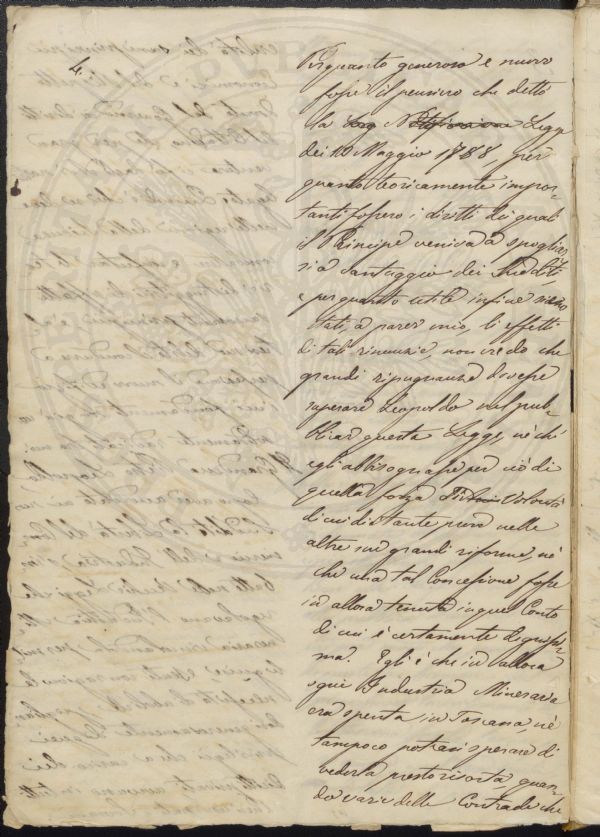 4.
Perquanto generoso e nuovo
fosse il pensiero che dettò
la Legge
dei 13 Maggio 1788, per
quanto teoricamente impor-
tanti fossero i diritti dei quali
il Principe veniva a spogliar
si a vantaggio dei Sudditi,
e per quanto utili infine sieno
stati, a parer mio, li effetti
di tali rinunzie, non credo che
grandi ripugnanze dovesse
superare Leopoldo nel pub-
blicar questa Legge, nè ch'
egli abbisognasse per ciò di
quella forza Volontà
di cui di tante prove nelle
altre sue grandi riforme, nè
che una tal Concessione fosse
in allora tenuta in quel Conto
di cui è certamente degnissi-
ma. Egli è che in allora
ogni Industria Mineraria
era spenta in Toscana, nè
tampoco potevasi sperare di
vederla presto risorta, quan-
do varie delle Contrade che